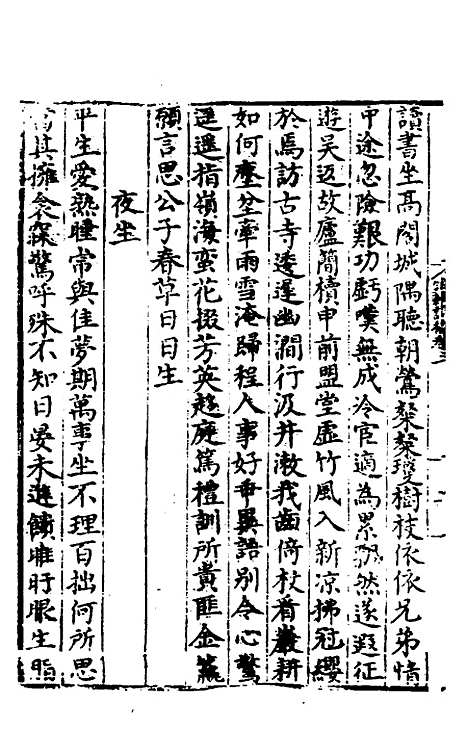 讀書坐高閣城隅聽朝鶯粲粲瓊樹枝依依兄弟情
中途忽險艱功虧嘆無成冷官適為累飄然遂遐征
遊吳返故廬簡櫝申前盟堂虛竹風入新凉拂冠纓
於焉訪古寺逶遲幽澗行汲井漱我齒倚杖看巖耕
如何塵坌牽雨雪淹歸程人事好乖異語別令心驚
遥遥指嶺海蛮花掇芳英趍庭篤禮訓所貴匪金籝
願言思公子春草日日生
夜坐
平生愛熟睡常與佳夢期萬事坐不理百拙何所思
當其擁衾深驚呼殊不知日晏未進饋睢盱眼生脂